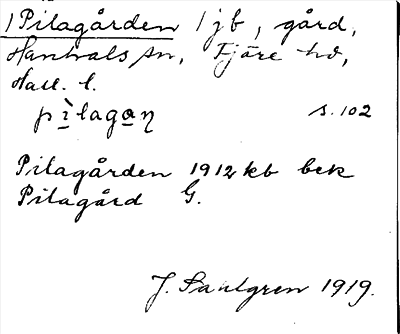 /Pilagården / jb, gård,
Hanhals sn, Fjäre hd,
Hall. l.
pìlagan̥ s. 102
Pilagården 1912 kb bek
Pilagård G.
J. Sahlgren 1919.